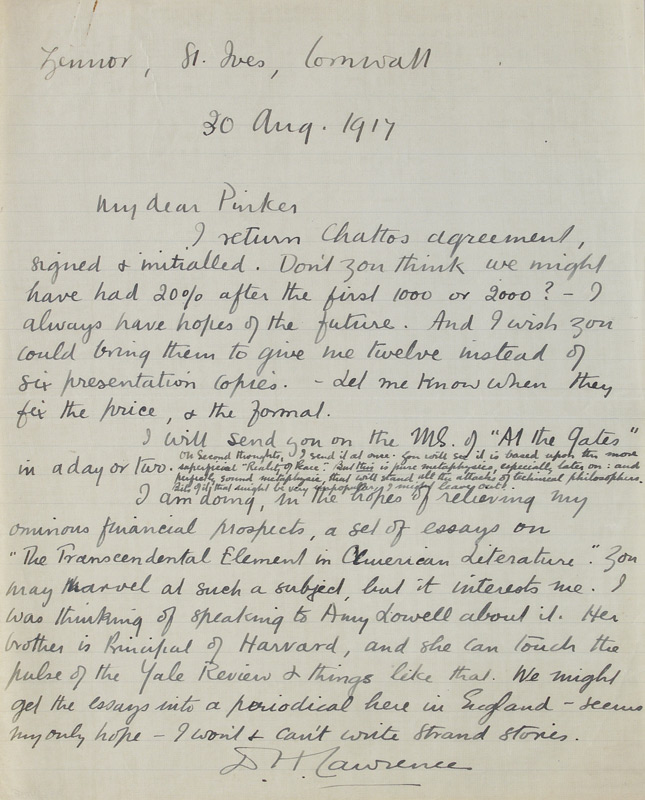 Zennor, St. Ives, Cornwall
30 Aug. 1917
My dear Pinker
I return Chattos agreement,
signed & initialled. Don't you think we might
have had 20% after the first 1000 or 2000? - I
always have hopes of the future. And I wish you
could bring them to give me twelve instead of
six presentation copies. - Let me know when they
fix the price, & the format.
I will send you on the MS. of "At the Gates"
in a day or two. On second thoughts, I send it at once: you will see it is based upon the more
superficial "Reality of Peace". But this is pure metaphysics, especially later on: and
perfectly sound metaphysic, that will stand all the attacks of technical philosophers.
Bits of it, that might be very unpopular, I might leave out.
I am doing, in the hopes of relieving my
ominous financial prospects, a set of essays on
"The Transcendental Element in American Literature". You
may marvel at such a subject, but it interests me. I
was thinking of speaking to Amy Lowell about it. Her
brother is Principal of Harvard, and she can touch the
pulse of the Yale Review & things like that. We might
get the essays into a periodical here in England - seems
my only hope - I won't & can't write Strand stories.
D. H. Lawrence